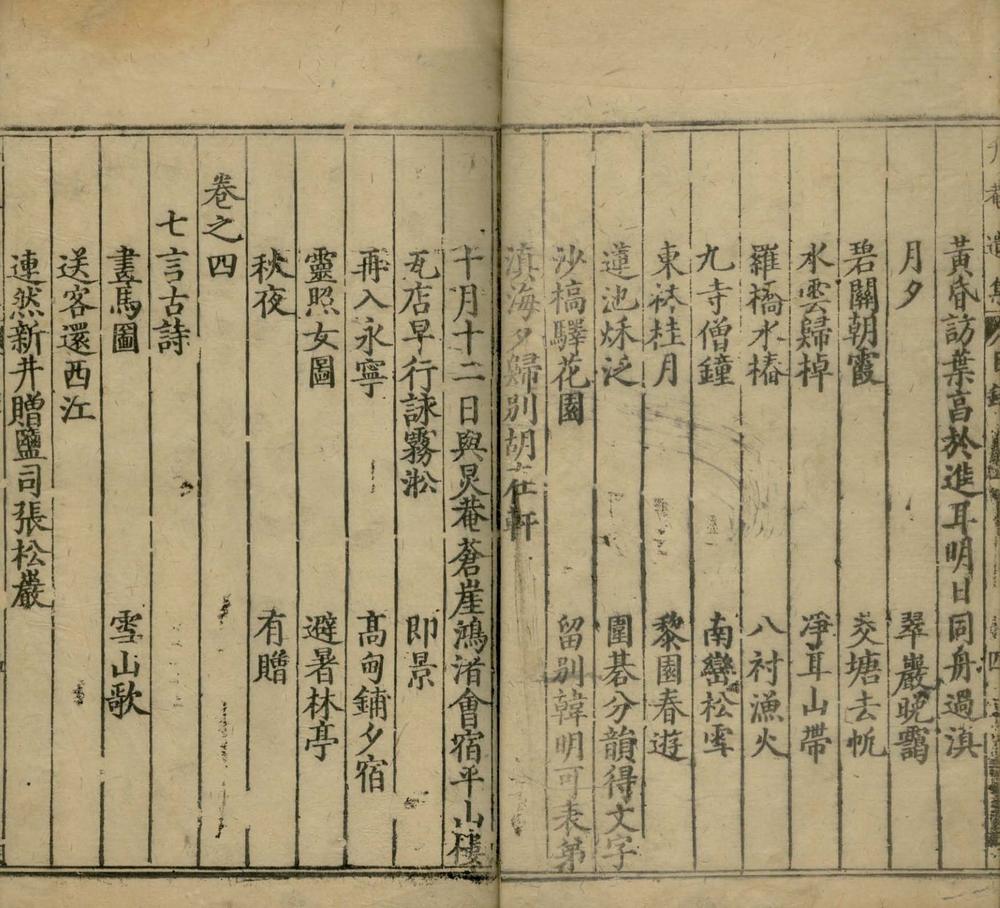 黃昏訪葉高於進耳明日同舟過滇
月夕 翠巖晚靄
碧關朝霞 交塘去帆
水雲歸棹 淨耳山帶
羅橋水樁 八村漁火
九寺僧鐘 南巒松雪
東林桂月 黎園春遊
蓮池秌泛 圍碁分韻得文字
沙橋驛花園 留別韓明可表弟
滇海夕歸別胡在軒
十月十二日與炅菴蒼崖鴻渚會宿平山樓
瓦店早行詠霧淞 即景
再入永寧 高甸鋪夕宿
靈照女圖 避暑林亭
秋夜 有贈
卷之四
七言古詩
畫馬圖 雪山歌
送客還西江
連然新井贈鹽司張松巖